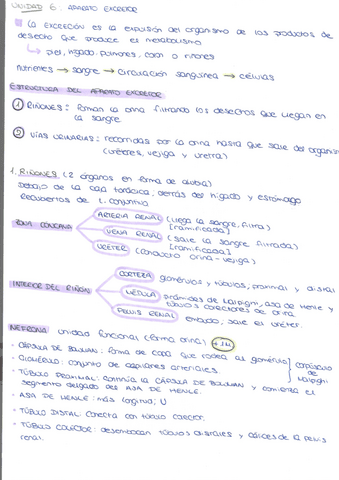 UNIDAD 6: APARATO EXCRETOR
La EXCRECIÓN es la expulsión del organismo de los productos de
desecho que produce el metabolismo
↳ piel, hígado, pulmones, colon o riñones
Nutrientes → sangre → circulación sanguínea → células
ESTRUCTURA DEL APARATO EXCRETOR
① RIÑONES: Forman la orina filtrando los desechos que llegan en
la sangre.
② VÍAS URINARIAS: recorridas por la orina hasta que sale del organism
(uréteres, vejiga y uretra)
1. RIÑONES (2 órganos en forma de alubia)
Debajo de la caja torácica, detrás del hígado y estómago
Recubiertos de t. conjuntivo
ZONA CÓNCAVA
ARTERIA RENAL (llega la sangre, filtra)
[ramificada]
VENA RENAL (sale la sangre filtrada)
[ramificada]
URÉTER (conducto orina - vejiga)
INTERIOR DEL RIÑÓN
CORTEZA glomérulos y túbulos, proximal y distal
MÉDULA pirámides de Malpighi, asa de Henle y
túbulos colectores de orina
PELVIS RENAL embudo, sale el uréter.
NEFRONA: unidad funcional (forma orina)
· CÁPSULA DE BOWMAN: forma de copa que rodea al glomérulo
· GLOMÉRULO: conjunto de capilares arteriales.
corpúsculo
de
Malpighi
· TÚBULO PROXIMAL: continúa la CÁPSULA DE BOWMAN y comienza el
segmento delgado del ASA DE HENLE.
· ASA DE HENLE: más longitud, U
· TÚBULO DISTAL: conecta con túbulo colector.
· TÚBULO COLECTOR: desembocan túbulos distales y cálices de la pelvis
renal.